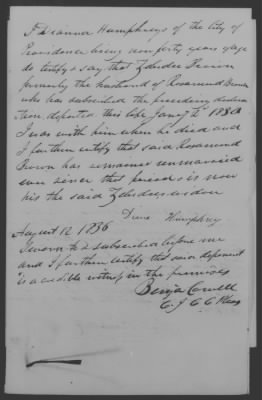 I Dianna Humphreys of the City of
Providence being now forty years of age
do certify & say that Brown
formerly the husband of Rosamund Brown
who has subscribed the preceding declara
tion departed this life Jany 1830
I was with him when he died and
I further certify that said Rosamund
Brown has remained unmarried
ever since that period & is now
his the said widow
Humphrey
August 12 1836
Sworn to & subscribed before me
and I further certify that said deponent
is a credible witness in the premises
Benja Cowell
C. J. C. C. Pleas